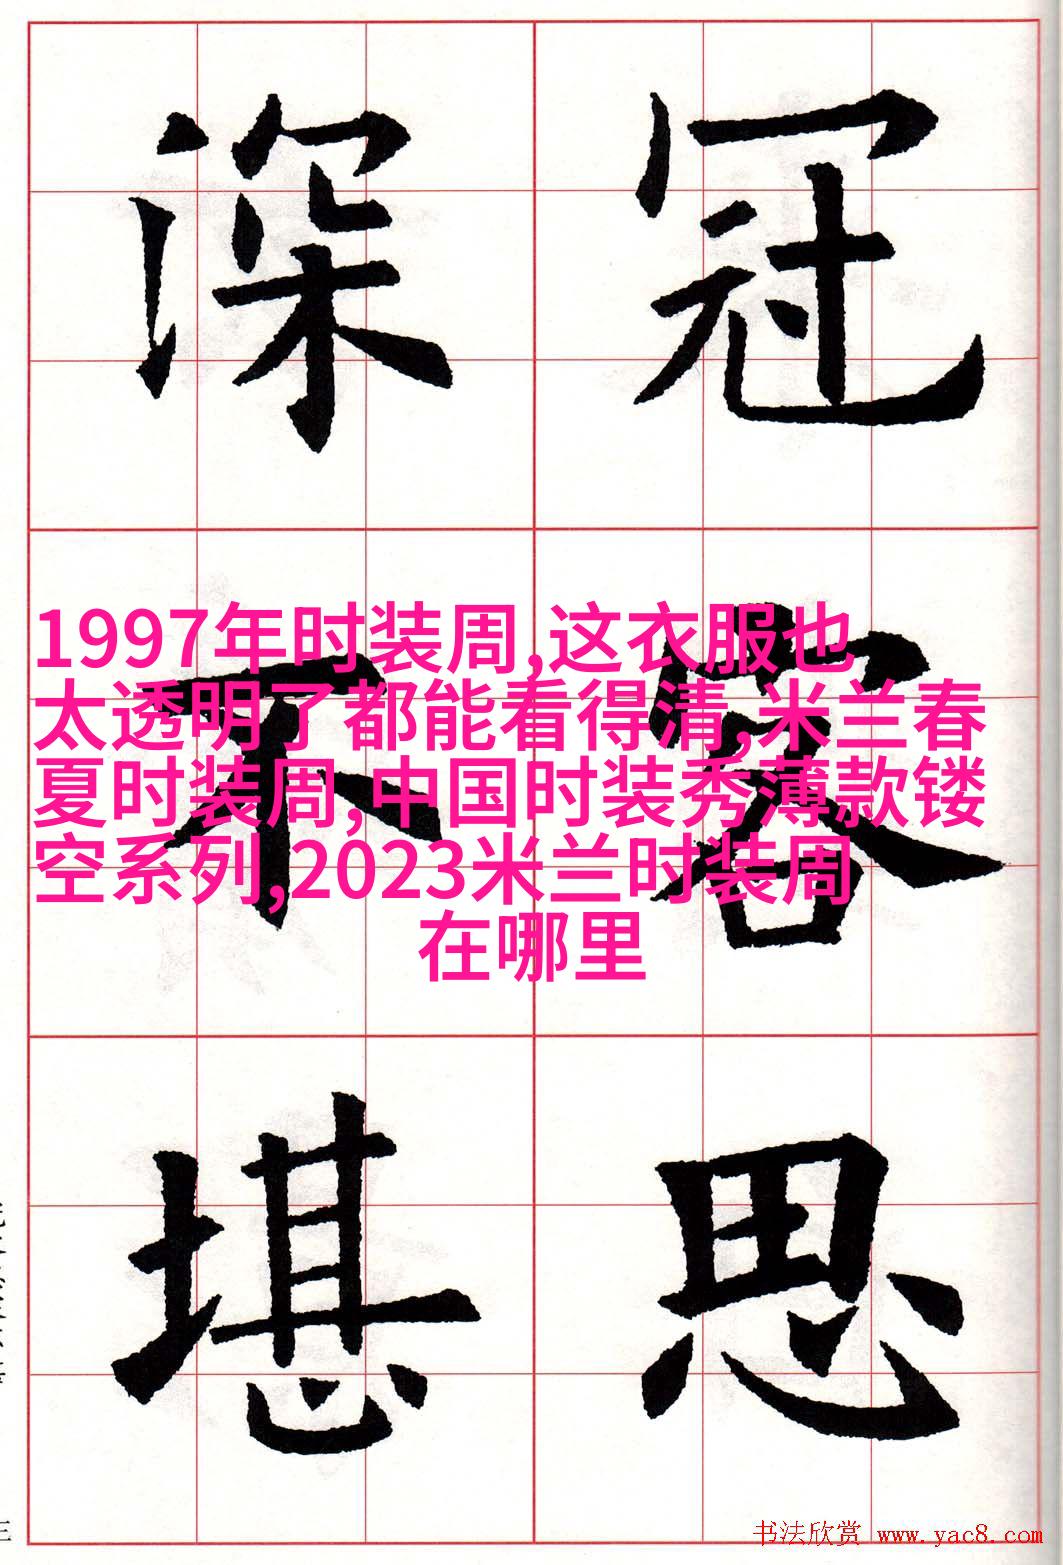 冠容思
深不堪
1997年时装周,这衣服也
太透明了都能看得清,米兰春
夏时装周,中国时装秀薄款镂
空系列,2023米兰时装周
在哪里
书法欣赏 www.yac8.com